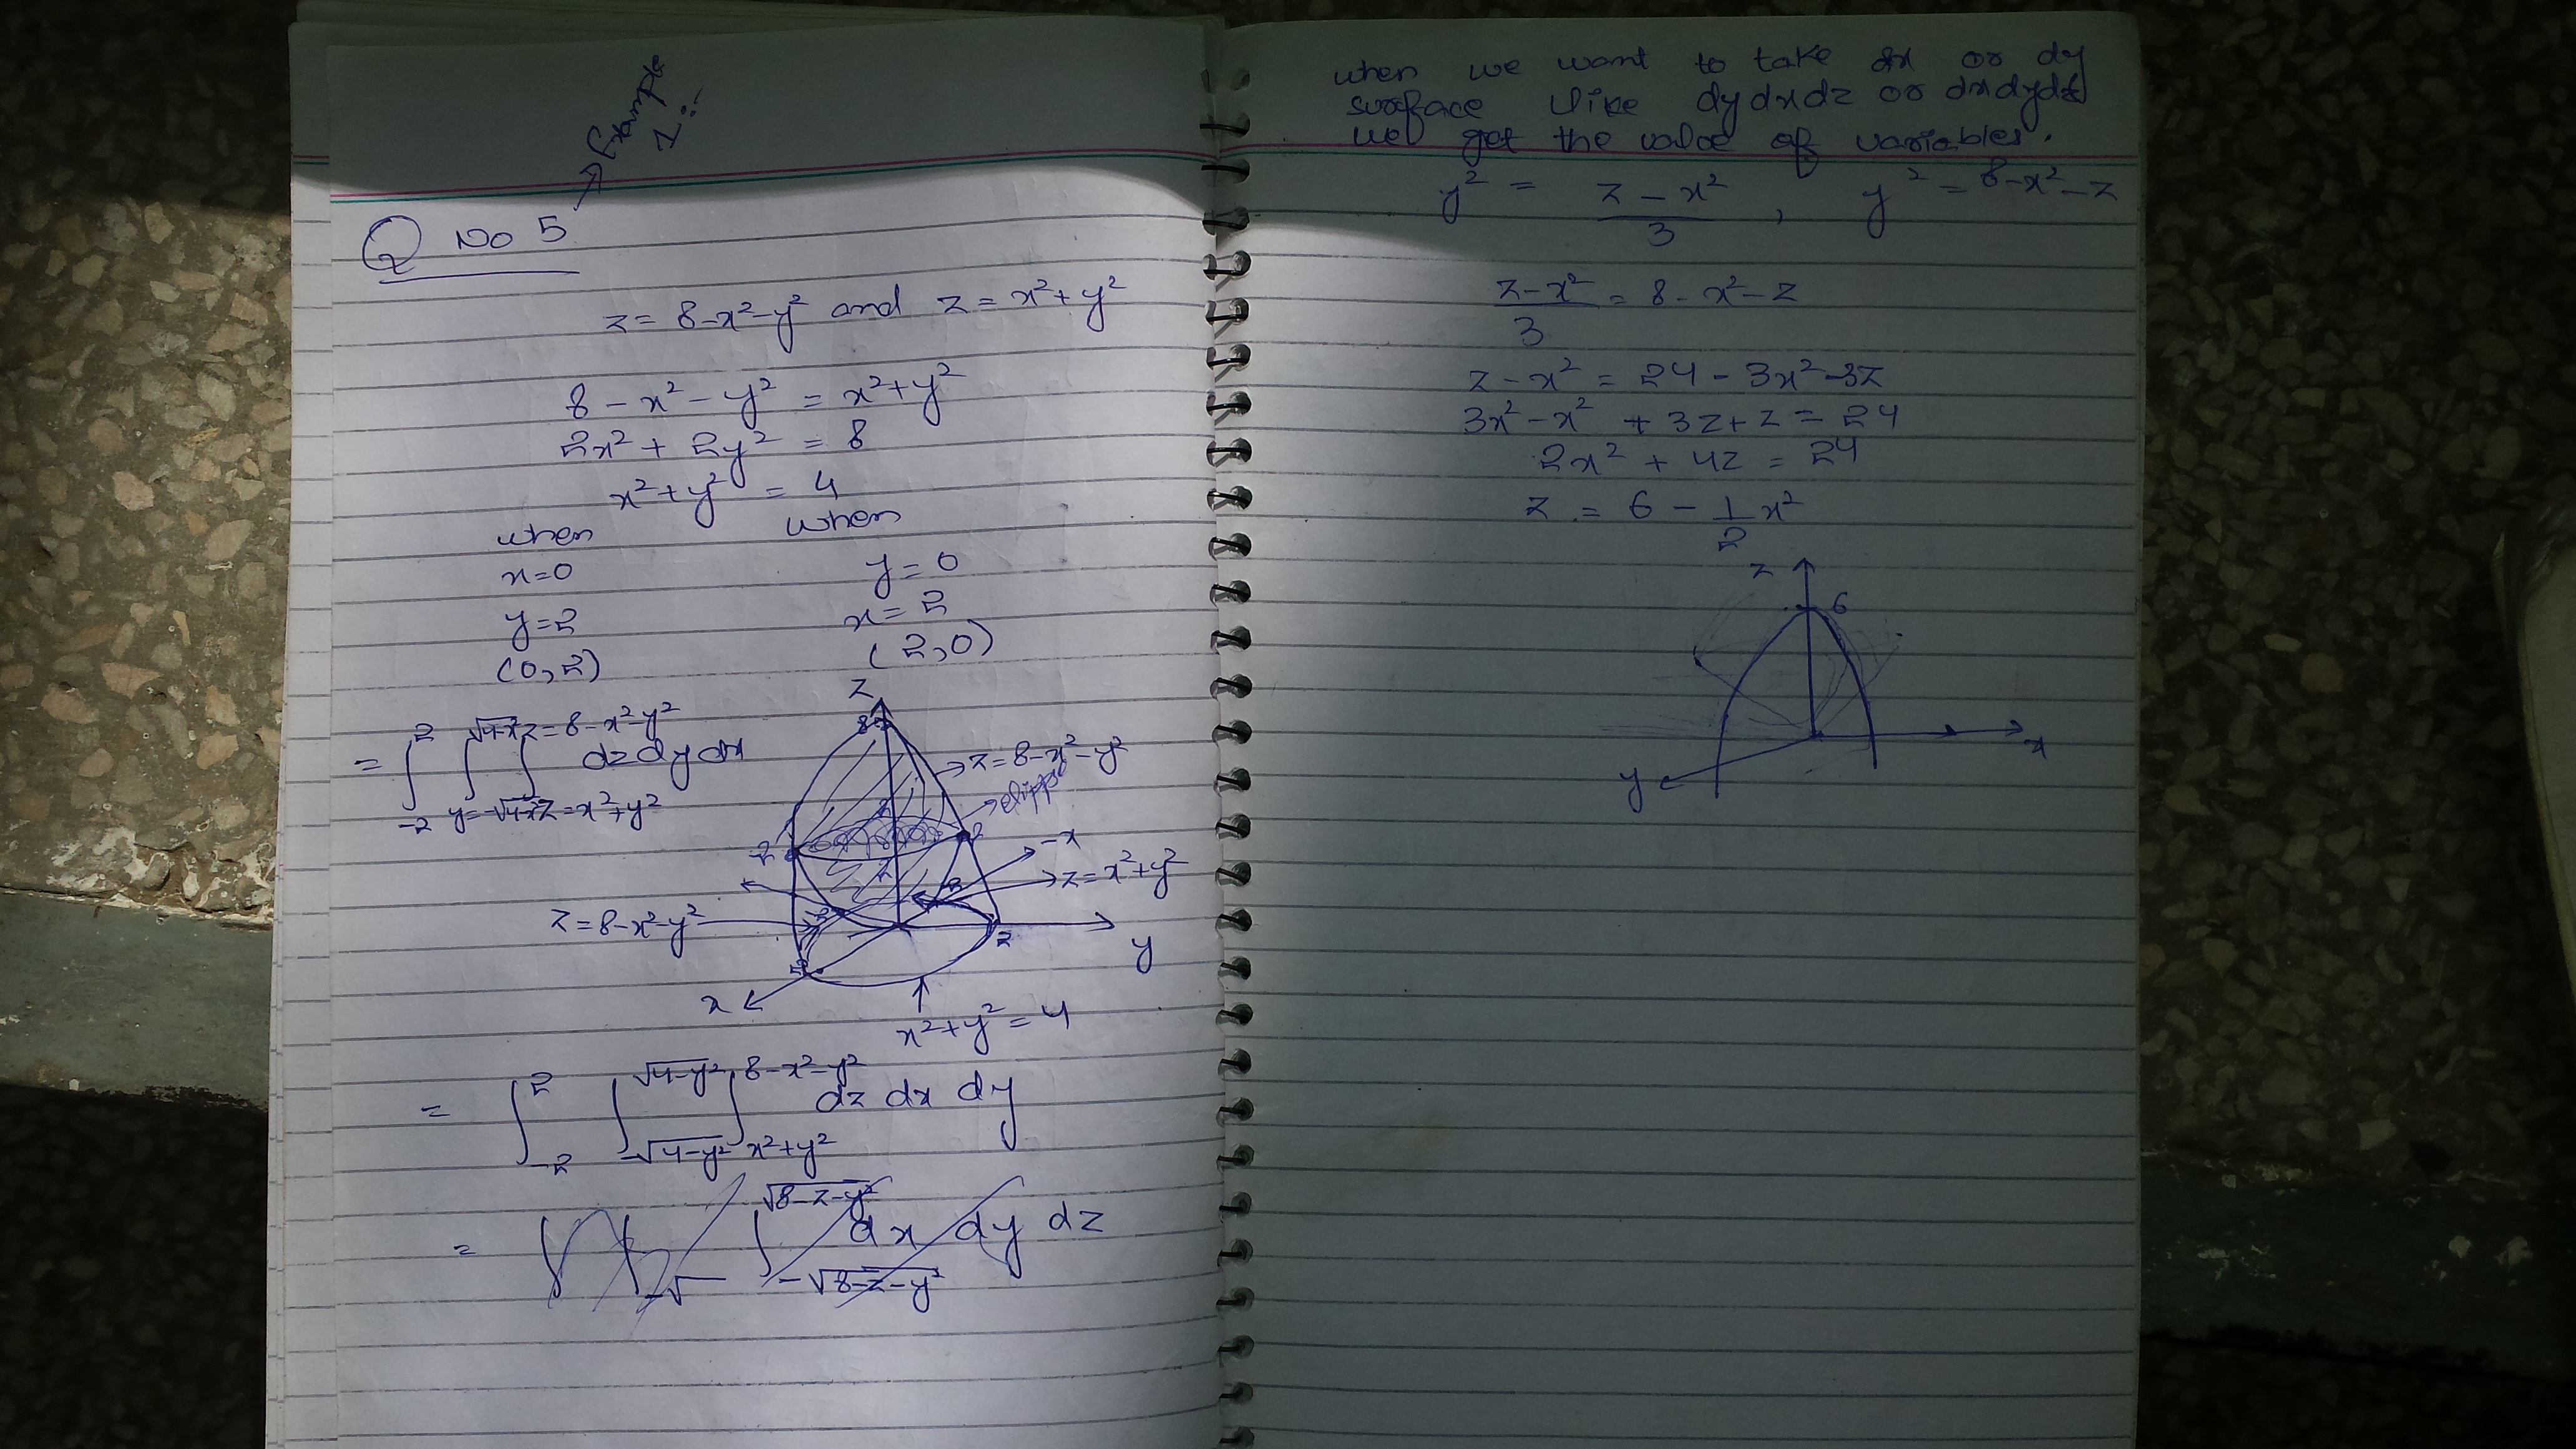 Example
1:
Q No 5
z = 8-x²-y² and z = x²+y²
8 - x² - y² = x²+y²
2x² + 2y² = 8
x²+y² = 4
when when
x=0 y=0
y=2 x=2
(0,2) (2,0)
= ∫_{-2}^{2} ∫_{y=-√4-x²}^{√4-x²} ∫_{z=x²+y²}^{z=8-x²-y²} dz dy dx
z
8
→z=8-x²-y²
-2
2
-x
→z=x²+y²
z=8-x²-y²
2
y
x
x²+y²=4
= ∫_{-2}^{2} ∫_{-√4-y²}^{√4-y²} ∫_{x²+y²}^{8-x²-y²} dz dx dy
= ∫ ∫_{-√} ∫_{-√8-z-y²}^{√8-z-y²} dx dy dz
when we want to take dx or dy
surface like dydxdz or dxdydz
we get the value of variables.
y² = z-x²/3 , y² = 8-x²-z
z-x²/3 = 8-x²-z
z-x² = 24-3x²-3z
3x²-x² + 3z+z = 24
2x² + 4z = 24
z = 6 - 1/2 x²
z
6
x
y